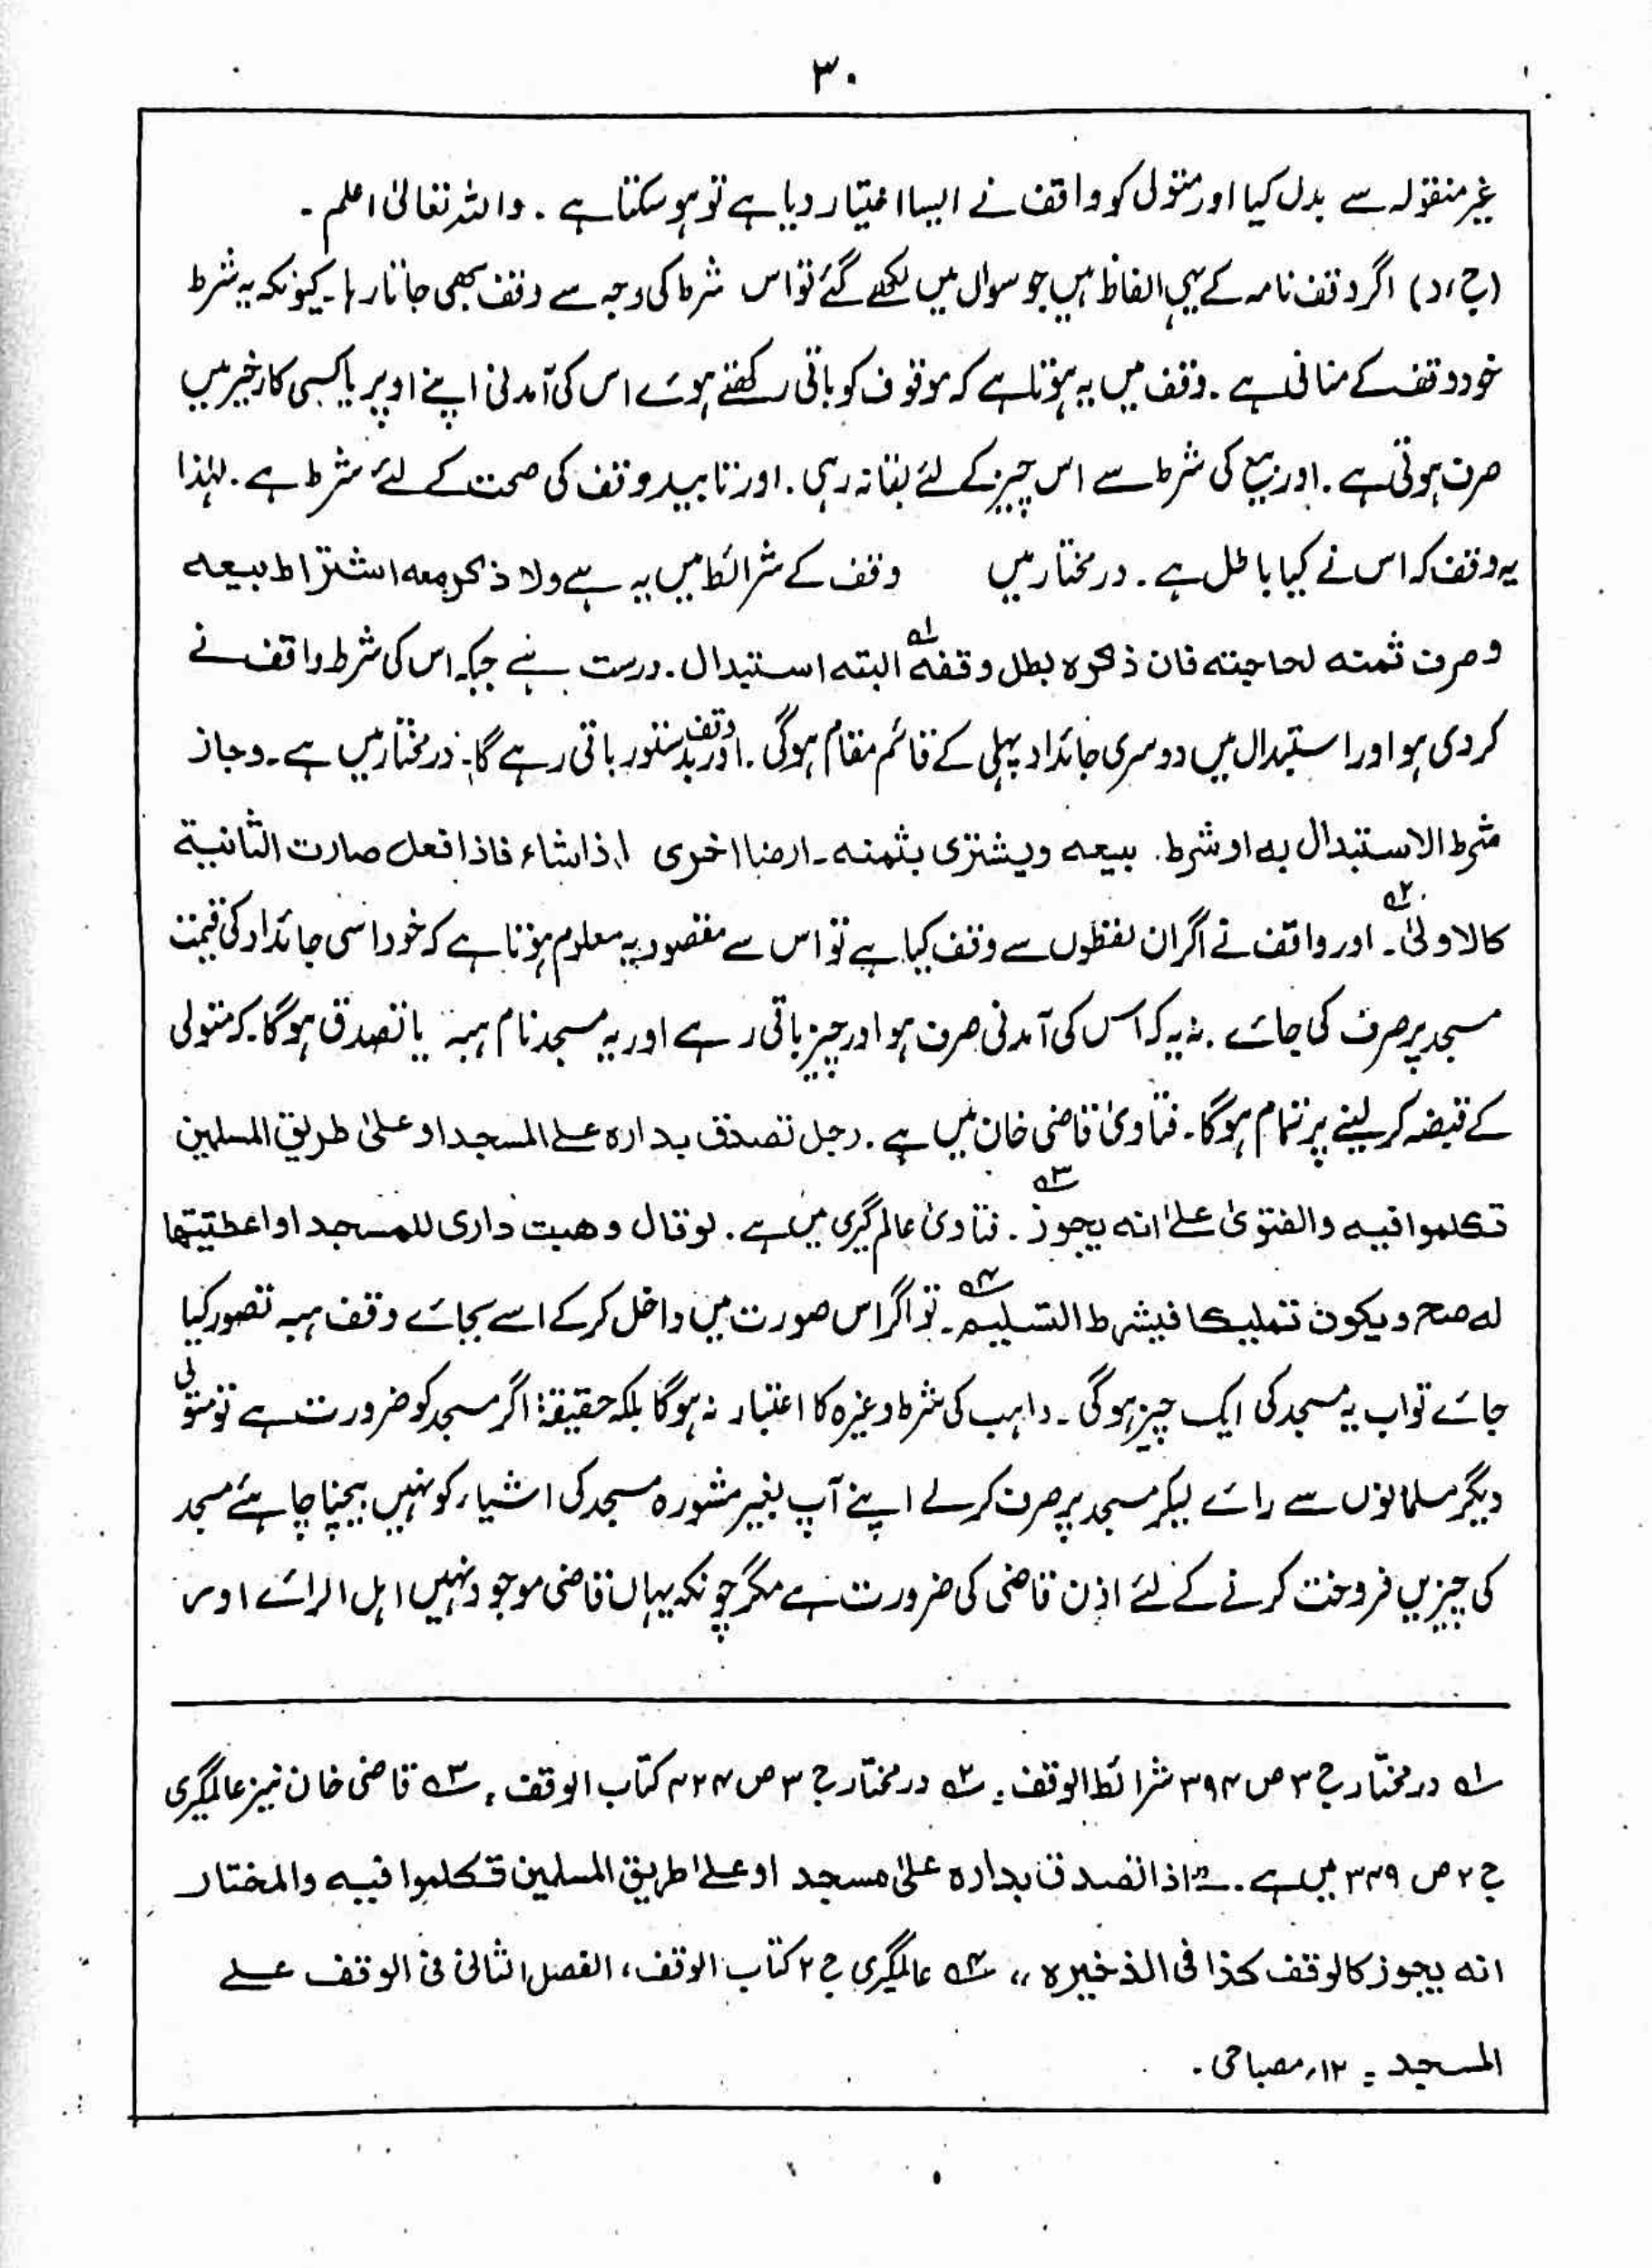 ۳۰
غیر منقولہ سے بدل کیا اور متولی کو واقف نے ایسا اختیار دیا ہے تو ہو سکتا ہے ۔ واللہ تعالیٰ اعلم ۔
(ج، د) اگر وقف نامہ کے یہی الفاظ ہیں جو سوال میں لکھے گئے تو اس شرط کی وجہ سے وقف بھی جاتا رہا ۔ کیونکہ یہ شرط
خود وقف کے منافی ہے ۔ وقف میں یہ ہوتا ہے کہ موقوف کو باقی رکھتے ہوئے اس کی آمدنی اپنے اوپر یا کسی کار خیر میں
صرف ہوتی ہے ۔ اور بیع کی شرط سے اس چیز کے لئے بقا نہ رہی ۔ اور تابید وقف کی صحت کے لئے شرط ہے ۔ لہٰذا
یہ وقف کہ اس نے کیا باطل ہے ۔ درمختار میں وقف کے شرائط میں یہ ہے ولا ذکر معه اشتراط بیعه
وصرف ثمنه لحاجته فان ذکرہ بطل وقفه ۱؎ البتہ استبدال ۔ درست ہے جبکہ اس کی شرط واقف نے
کر دی ہو اور استبدال میں دوسری جائداد پہلی کے قائم مقام ہوگی ۔ اور وقف بدستور باقی رہے گا ۔ درمختار میں ہے ۔ وجاز
شرط الاستبدال به او شرط ۔ بیعه ویشتری بثمنه ۔ ارضا اخری اذا شاء فاذا فعل صارت الثانیة
کالاولیٰ ۲؎ ۔ اور واقف نے اگر ان لفظوں سے وقف کیا ہے تو اس سے مقصود یہ معلوم ہوتا ہے کہ خود اسی جائداد کی قیمت
مسجد پر صرف کی جائے ۔ نہ یہ کہ اس کی آمدنی صرف ہو اور چیز باقی رہے اور یہ مسجد نام ہبہ یا تصدق ہوگا ۔ کہ متولی
کے قبضہ کر لینے پر تمام ہوگا ۔ فتاویٰ قاضی خان میں ہے ۔ رجل تصدق بدارہ علے المسجد او علیٰ طریق المسلمین
تکلموا فیه والفتویٰ علےٰ انه یجوز ۳؎ ۔ فتاویٰ عالمگیری میں ہے ۔ لو قال وهبت داری للمسجد او اعطیتها
له صح ویکون تملیکا فیشرط التسلیم ۴؎ ۔ تو اگر اس صورت میں داخل کر کے اسے بجائے وقف ہبہ تصور کیا
جائے تو اب یہ مسجد کی ایک چیز ہوگی ۔ واہب کی شرط وغیرہ کا اعتبار نہ ہوگا بلکہ حقیقۃً اگر مسجد کو ضرورت ہے تو متولی
دیگر مسلمانوں سے رائے لیکر مسجد پر صرف کرلے اپنے آپ بغیر مشورہ مسجد کی اشیاء کو نہیں بیچنا چاہئے مسجد
کی چیزیں فروخت کرنے کے لئے اذن قاضی کی ضرورت ہے مگر چونکہ یہاں قاضی موجود نہیں اہل الرائے اور
۱؎ درمختار ج ۳ ص ۳۹۴ شرائط الوقف ۔ ۲؎ درمختار ج ۳ ص ۴۲۴ کتاب الوقف ۔ ۳؎ قاضی خان نیز عالمگیری
ج ۲ ص ۳۴۹ میں ہے ۔ اذا تصدق بدارہ علیٰ مسجد او علےٰ طریق المسلمین تکلموا فیه والمختار
انه یجوز کالوقف کذا فی الذخیرہ ،، ۴؎ عالمگیری ج ۲ کتاب الوقف، الفصل الثانی فی الوقف علے
المسجد ۔ ۱۲، مصباحی ۔